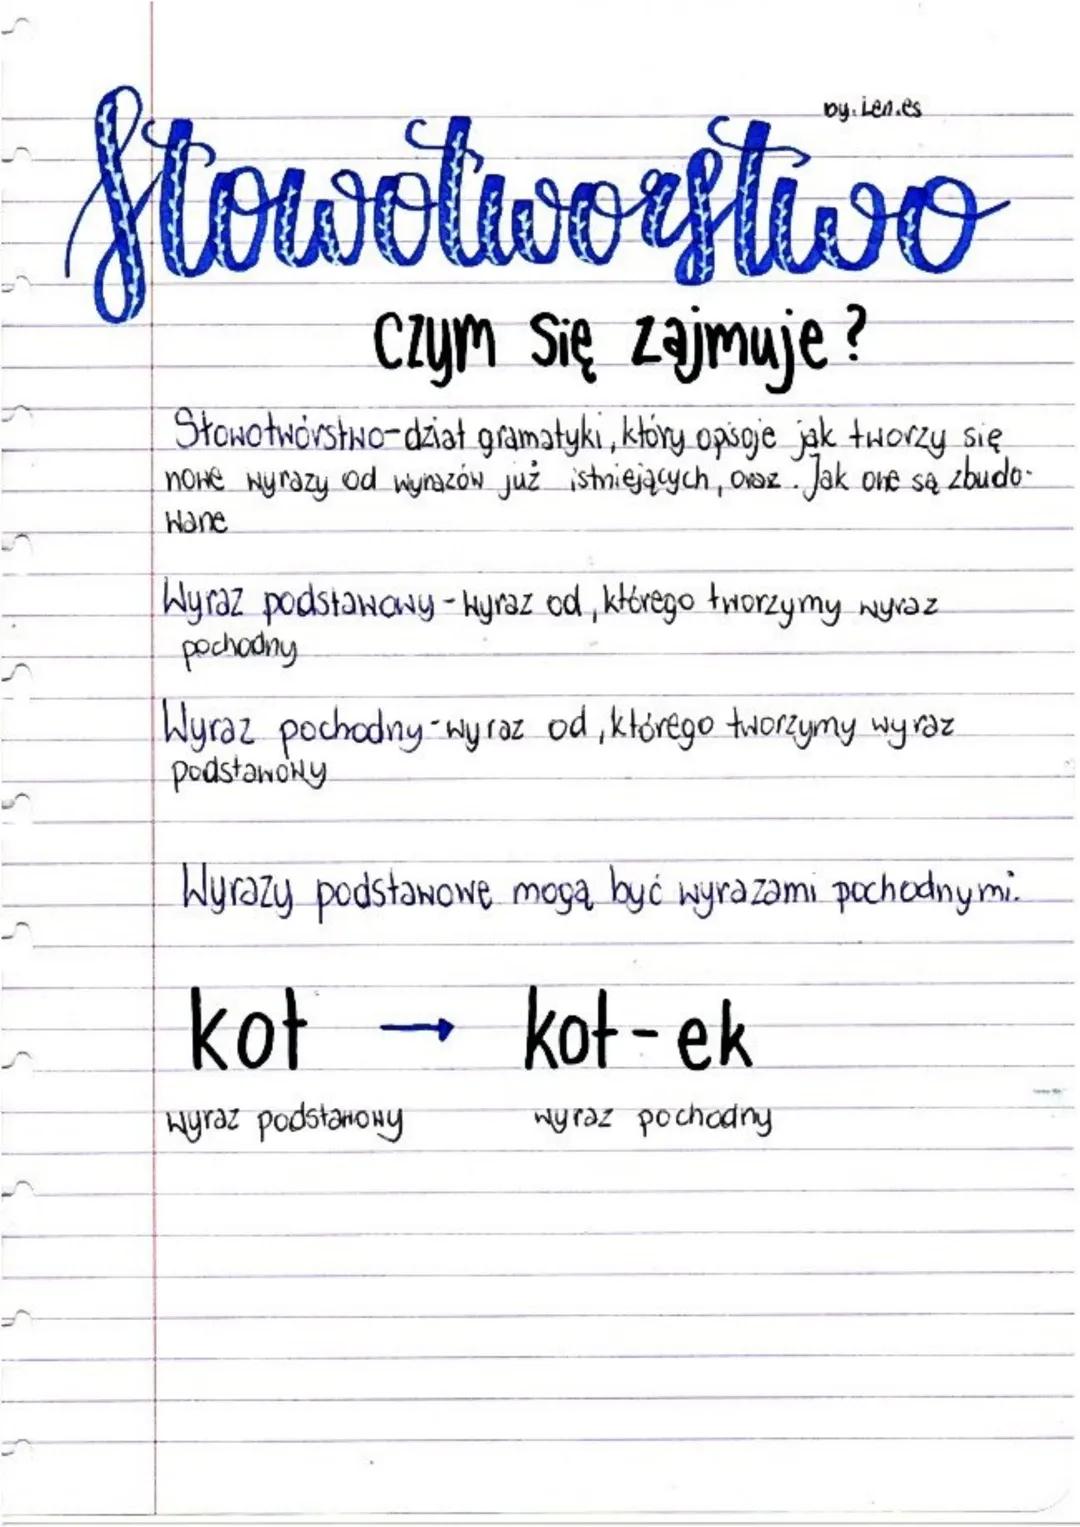 by.len.es
Słowotworstwo
Czym się zajmuje?
Słowotwórstwo-dział gramatyki, który opisuje jak tworzy się
nowe wyrazy od wyrazów już istniejących, oraz. Jak one są zbudo-
wane
Wyraz podstawowy-wyraz od, którego tworzymy wyraz
pochodny
Wyraz pochodny-wyraz od, którego tworzymy wyraz
podstawowy
Wyrazy podstawowe mogą być wyrazami pochodnymi.
kot → kot-ek
wyraz podstawowy wyraz pochodny